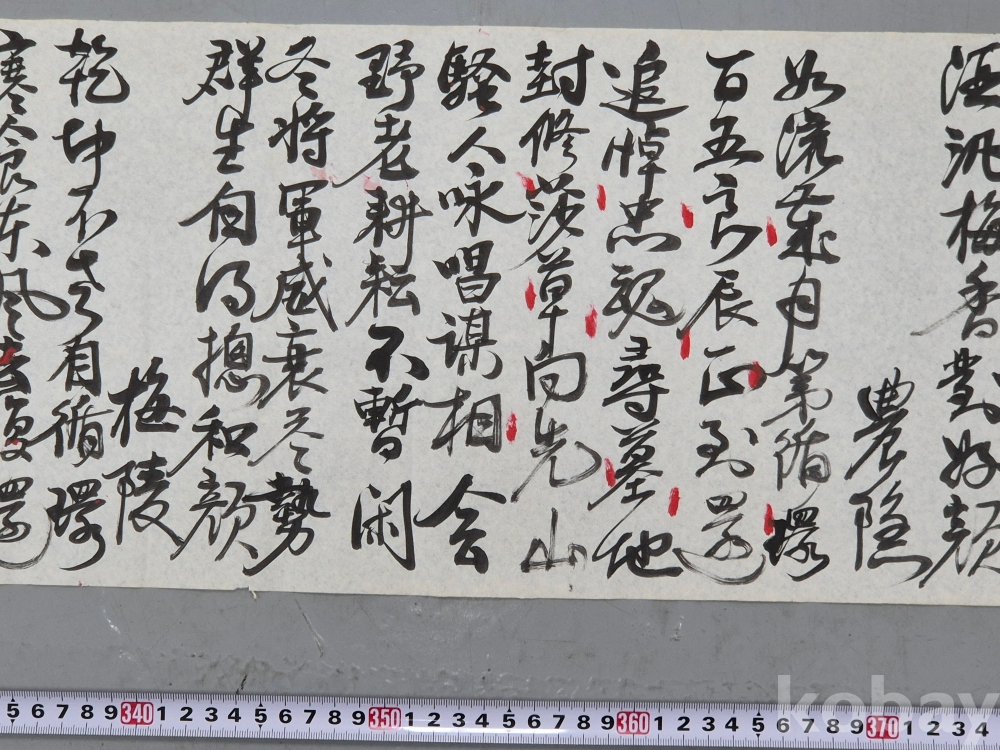 酒汎梅香對好顔
農隠
如流歳月第循環
百五良辰正到還
追悼忠魂尋墓地
封修莎草向先山
騷人咏唱謀相会
野老耕耘不暫閑
冬将軍威衰冬勢
群生自得摠和顔
梅陵
乾坤不言有循環
寒冬良東風去復還
5 6 7 8 9 340 1 2 3 4 5 6 7 8 9 350 1 2 3 4 5 6 7 8 9 360 1 2 3 4 5 6 7 8 9 370 1 2 3 4
kobay